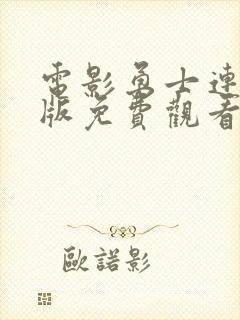 電影勇士連
版免費觀看
歐諾影